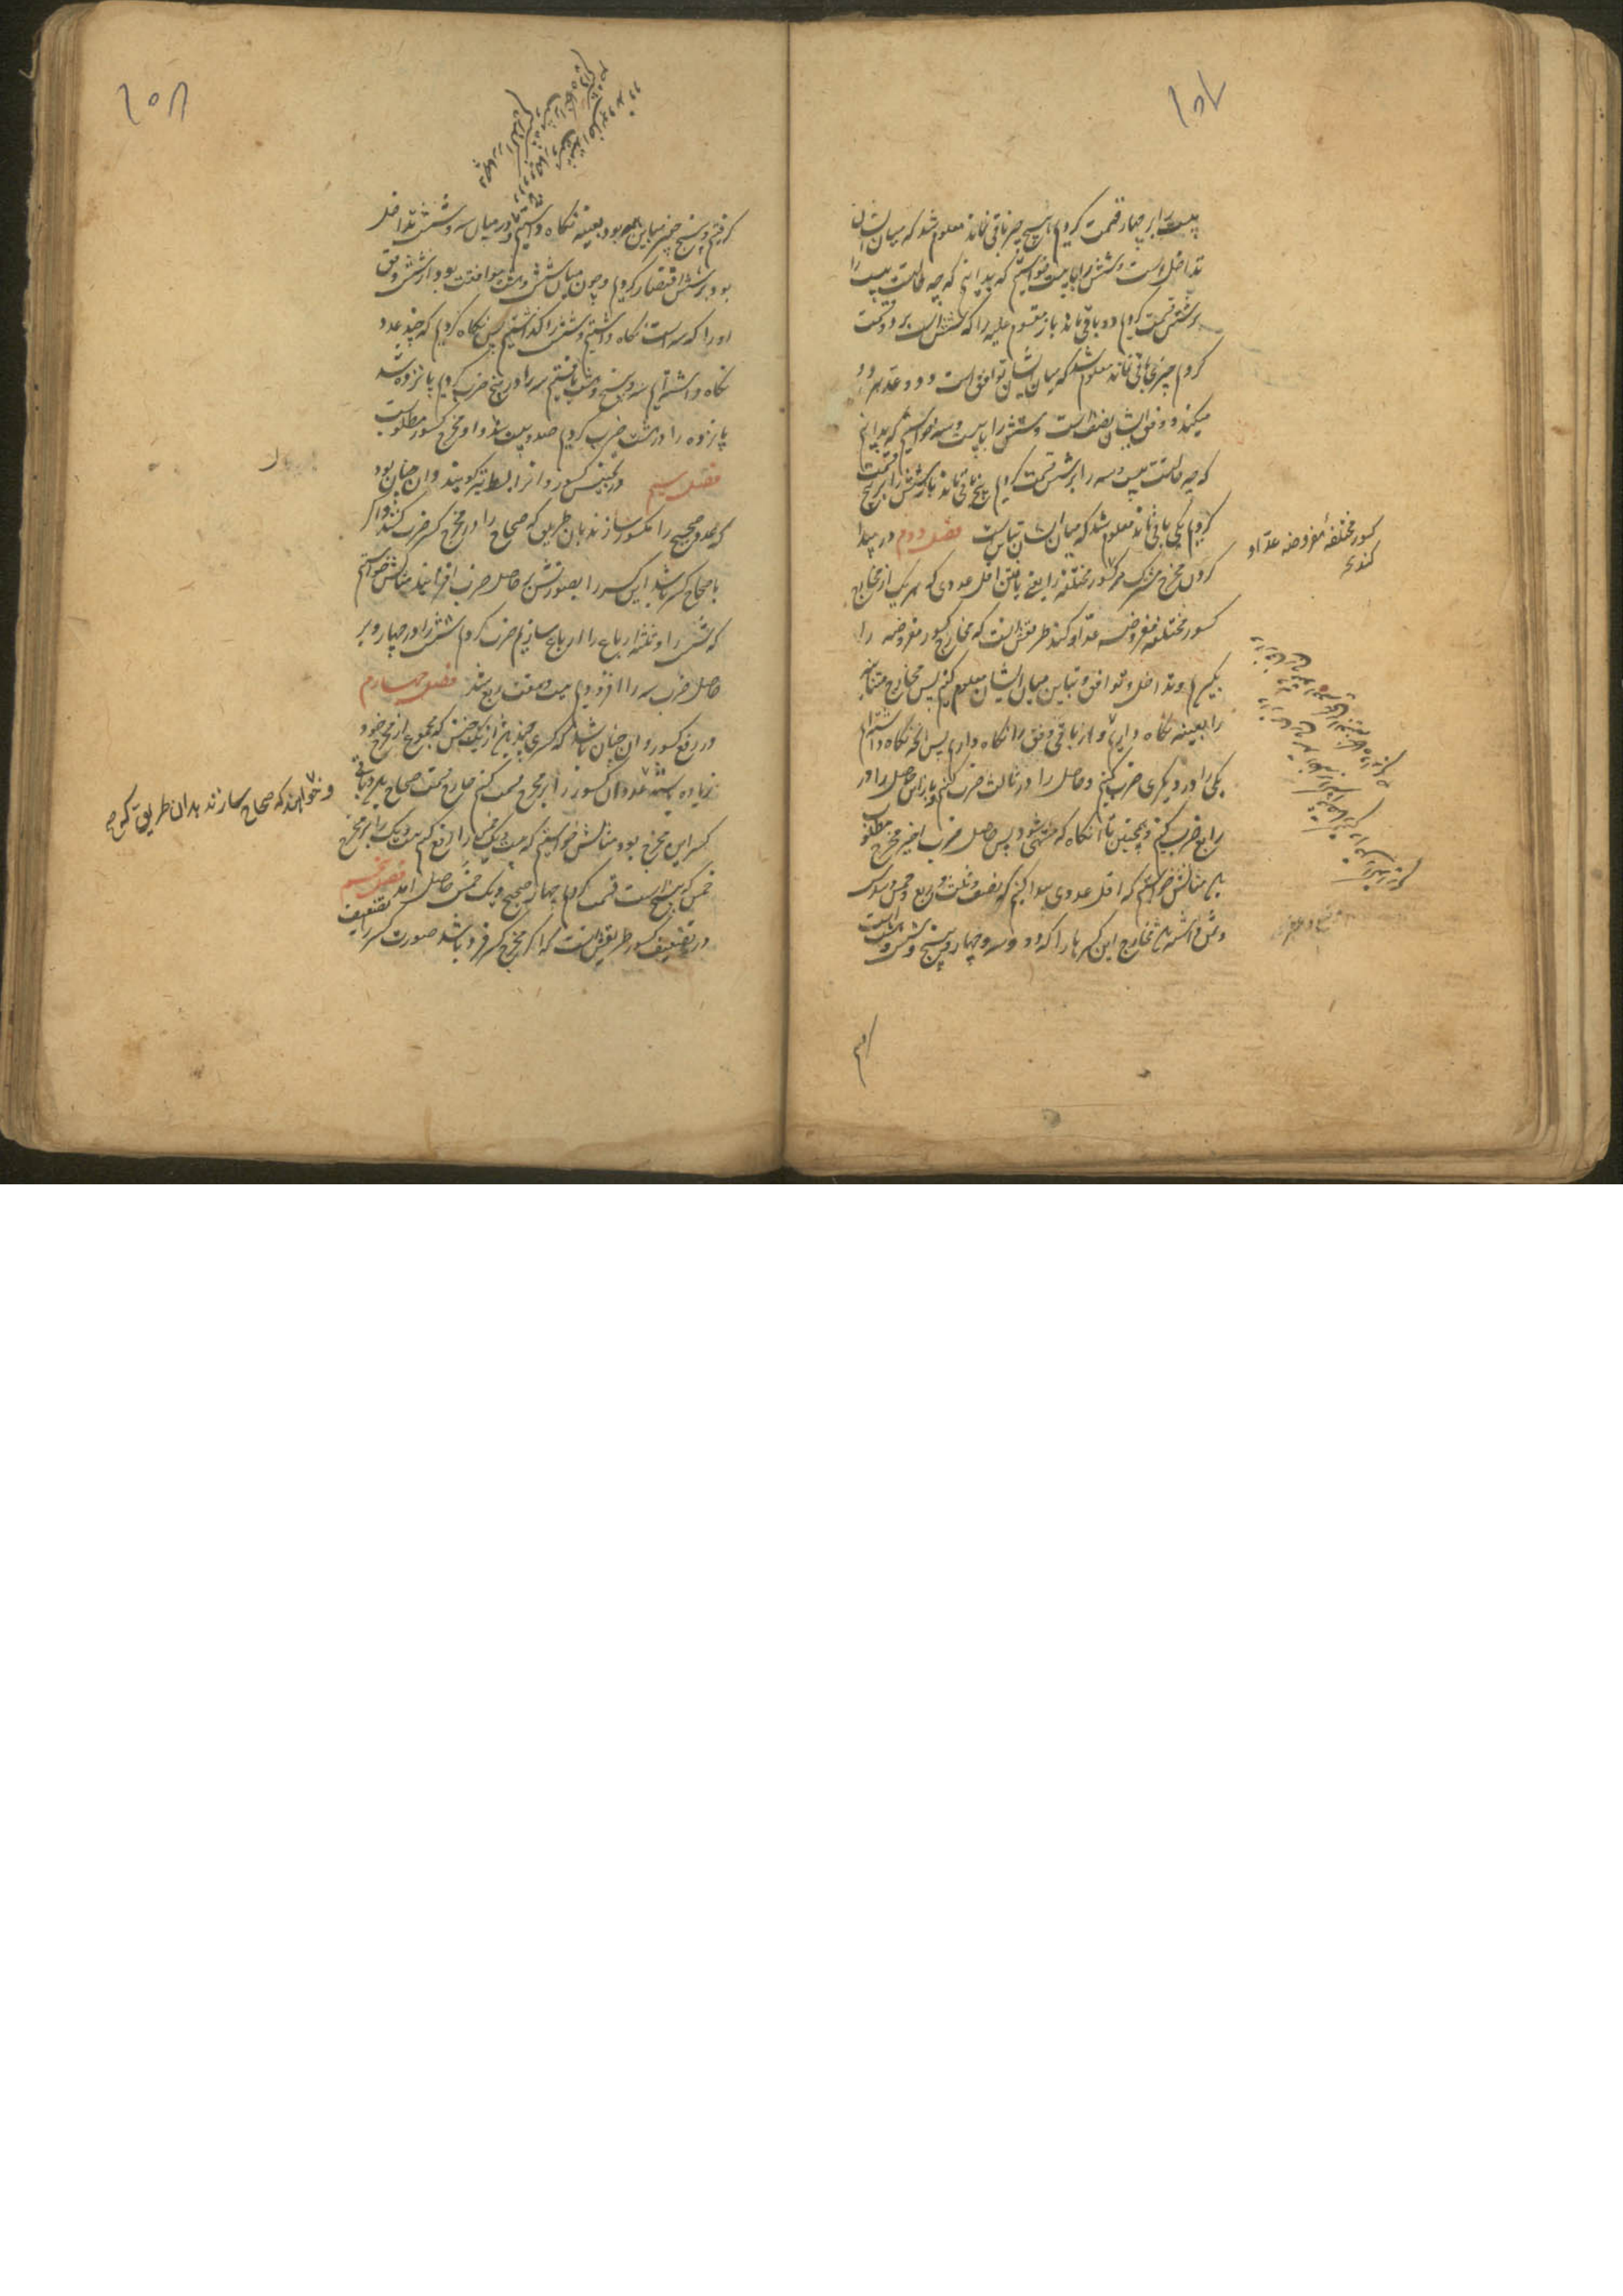 بیست را بر چهار قسمت کردیم هیچ چیز باقی نماند معلوم شد که میان ایشان
تداخل است و شش را با بیست خواستیم که بدانیم که چه حالست بیست را
بر شش قسمت کردیم دو باقی ماند باز مقسوم علیه را که شش است بر دو قسمت
کردیم چیزی باقی نماند معلوم شد که میان ایشان توافق است و دو عد هر دو
میکند و وفق ایشان نصف است و شش را با بیست و سه خواستیم که بدانیم
که چه حالست بیست و سه را بر شش قسمت کردیم پنج باقی ماند باز شش را بر پنج قسمت
کردیم یکی باقی ماند معلوم شد که میان ایشان تباین است فصل دوم در پیدا
کردن مخرج مشترک مر کسور مختلفه را یعنی یافتن اقل عددی که هر یک از مخارج
کسور مختلفه مفروضه عد او کند طریقش آنست که مخارج کسور مفروضه را
بگیریم و تداخل و توافق و تباین میان ایشان معلوم کنیم پس مخارج متباینه
را بعینه نگاه داریم و از باقی وفق را نگاه داریم پس آنچه نگاه داشته‌ایم
یکی را در دیگری ضرب کنیم و حاصل را در ثالث ضرب کنیم و باز این حاصل را در
رابع ضرب کنیم و همچنین تا آنگاه که منتهی شود پس حاصل ضرب اخیر مخرج مطلوب
باشد مثالش خواستیم که اقل عددی پیدا کنیم که نصف و ثلث و ربع و خمس و سدس
و ثمن داشته باشد مخارج این کسرها را که دو و سه و چهار و پنج و شش و هشت است
کسور مختلفه مفروضه عد او
کند
گرفتیم و پنج چیز مباین همه بود بعینه نگاه داشتیم و در میان سه و شش تداخل
بود بر شش اقتصار کردیم و چون میان شش و هشت موافقت بود از شش وفق
او را که سه است نگاه داشتیم و شش را گذاشتیم پس نگاه کردیم که چند عدد
نگاه داشته‌ایم سه و پنج و هشت یافتیم سه را در پنج ضرب کردیم پانزده شد
پانزده را در هشت ضرب کردیم صد و بیست شد و او مخرج کسور مطلوب است
فصل سیم در تجنیس کسور و آنرا بسط نیز گویند و آن چنان بود
که عدد صحیح را مکسور سازند بدان طریق که صحاح را در مخرج کسر ضرب کنند و اگر
با صحاح کسر باشد این کسر را بصورتش بر حاصل ضرب افزایند مثالش خواستیم
که شش را و ثلثه ارباع را ارباع سازیم ضرب کردیم شش را در چهار و بر
حاصل ضرب سه را افزودیم بیست و هفت ربع شد فصل چهارم
در رفع کسور و آن چنان باشد که کسری چند باشد از یک جنس که مجموع از مخرج خود
زیاده باشد عدد آن کسور را بر مخرج قسمت کنیم خارج قسمت صحاح بود و باقی
کسر این مخرج بود مثالش خواستیم که بیست و یک خمس را رفع کنیم بیست و یک را بر مخرج
خمس که پنج است قسمت کردیم چهار صحیح و یک خمس حاصل آمد فصل پنجم
در تضعیف کسور طریقش آنست که اگر مخرج کسر فرد باشد صورت کسر را تضعیف
و خواهند که صحاح سازند بدان طریق که